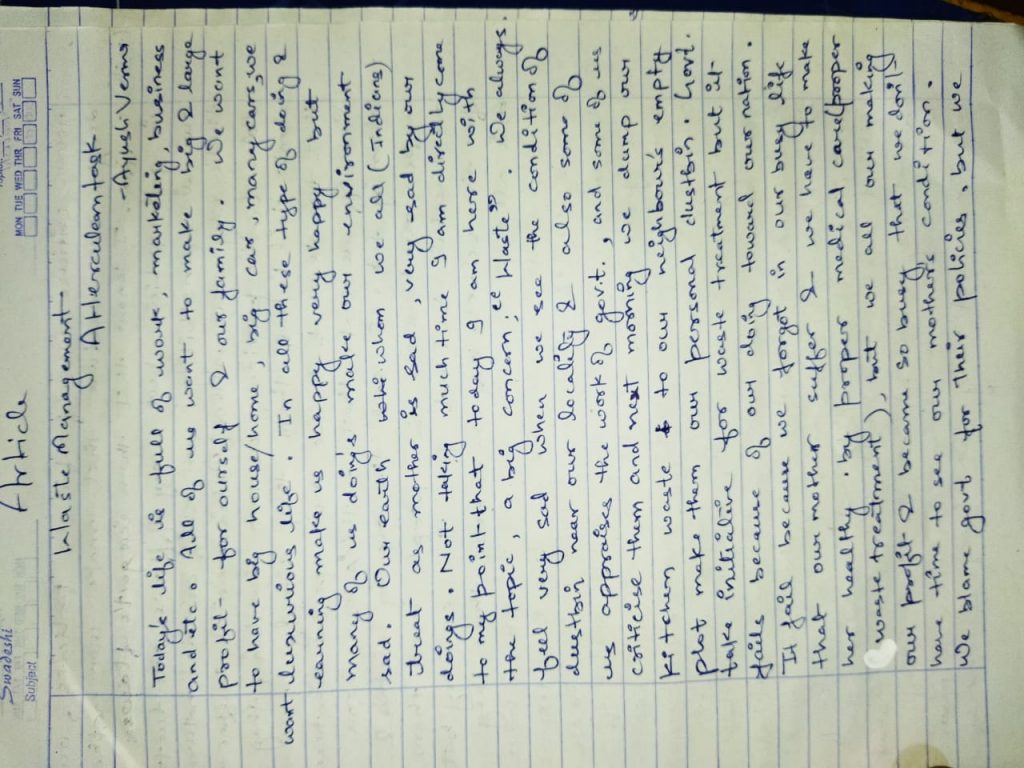 Swadeshi
Subject
MON TUE WED THR FRI SAT SUN
Article
Waste Management
A Herculean task
- Ayush Verma
Today's life, is full of work, marketing, business
and etc. All of us want to make big & large
profit for ourself & our family. We want
to have big house/home, big car, many cars, we
want luxurious life. In all these type of doing &
earning make us happy very happy but
many of us doing's make our environment
sad. Our earth whom we all (Indians)
threat as mother is sad, very sad by our
doings. Not taking much time I am directly come
to my point that today I am here with
the topic, a big concern; "Waste". We always
feel very sad when we see the condition of
dustbin near our locality & also some of
us appraises the work of govt., and some of us
criticise them and next morning we dump our
kitchen waste to our neighbour's empty
plot make them our personal dustbin. Govt.
take initiative for waste treatment but it
fails because of our doing toward our nation.
It fail because we forgot in our busy life
that our mother suffer & we have to make
her healthy. by proper medical care (proper
waste treatment), but we all our making
our profit & became so busy that we don't
have time to see our mother's condition.
We blame govt for their policies, but we